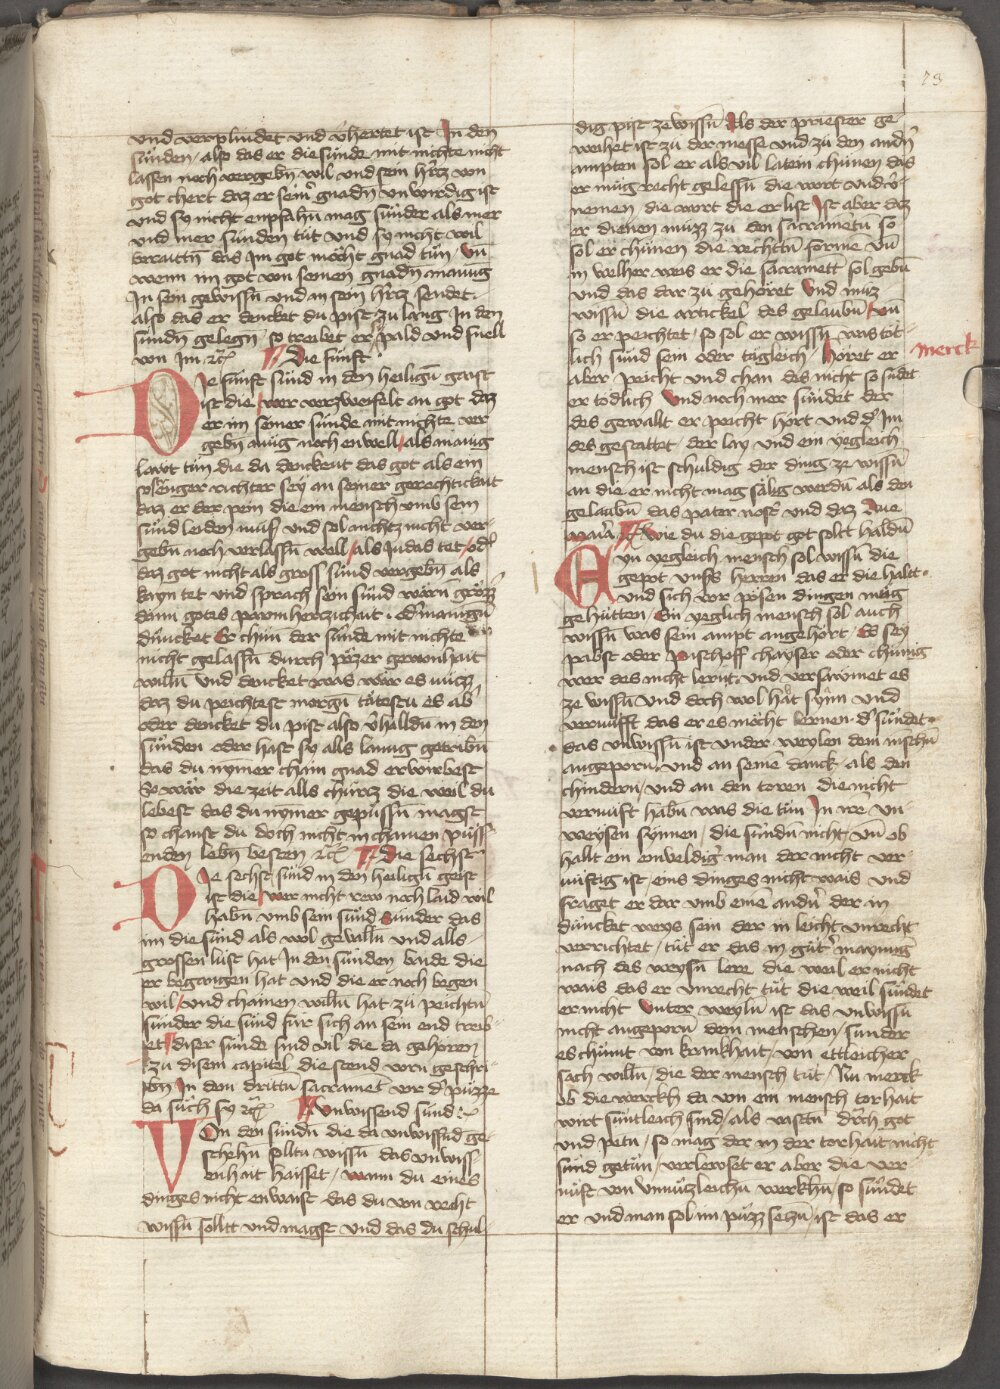 73
und verplindet und v̓hertet ist In den
sünden / also das er die sünde mit nichte nicht
lassen noch vergebn̄ wil und sein hercz von
got chert daz er sein̓ gnadn̄ unwirdig ist
und sy nicht enpfahn̄ mag sünder als mer
und mer sünden tůt und sy nicht wil
das Im got möcht gnad tůn Un̄
wenn im got von seinen gnadn̄ manug
In sein gewissn̄ und in sein hercz sendet
also das er dencket du pist zu lang In den
sündn̄ gelegn̄ so treibet er pald und snell
von im ꝛc̄ Die fünft
Die fünft sünd in den heilign̄ gaist
ist die / wer verzweifelt an got daz
er im seiner sünde mit nichte ver
gebn̄ müg noch enwell / als manig
lawt tün die da denckent das got als ein
strenger richter sey an seiner gerechtickait
daz er der pein die ein mensch umb sein
sünd leiden muss und sol nichtz nicht ver-
gebn̄ noch verlassn̄ well / als Judas tet / od̓
daz got nicht als gross sünd vergebn̄ als
kayn tet und sprach sein sünd wärn̄ grözz̓
dann gotes parmherzichait
düncket Er chün der sünde mit nichte
nicht gelassn̄ durch pözer gewonhait
willn̄ und dencket was wär es nücz
daz du peichtest morgn̄ tätestu es ab̓
oder dencket du pist also v̓halldn̄ in den
sünden oder hast sy alls lanng getribn̄
das du nymer chain gnad erwirbest
So wär die zeit alls chürcz die weil du
lebest das du nymer gepüssn̄ magst
so chanst du doch nicht in chainen püss
enden lebn̄ besten ꝛc̄ Die sechst
Die sechst sünd in den heilign̄ geist
ist die / wer nicht rew noch laid wil
habn̄ umb sein sünd Sünder das
im die sünd als wol gevalln̄ und alls
grossen lust hat In den sünden baide die
er begangen hat und die er noch begen
wil / und chainen willn̄ hat zu peichtn̄
sünder die sünd für sich an sein end treib
et / diser sünde sind vil die da gehoren
zu disem capitel die stend vorn geschri
ibn̄ In dem drittn̄ sacramēt vor d̓ püzze
da sůch sy ꝛc̄ Unwissend sünd
Von den sündn̄ die da unwissn̄d ge-
schehn̄ solltu wissn̄ das unwiss
enhait haisset / wann du eines
dinges nicht enwaist das du von recht
wissn̄ solltt und magst und das du schul-
dig pist ze wissn̄ Als der priester ge
weihet ist zu der messe und zu den andn̓
ampten sol er als vil latein chünen das
er müg recht gelessn̄ die wort und v̓-
nemen / die wort die er list Ist aber daz
er dienen muzz zu den sacramentn̄ so
sol er chünen die rechtn̄ forme un̄
in welher weis er die sacramēt sol gebn̄
und das dar zu gehöret Und muz
wissn̄ die artickel des gelaubn̄ / un̄
so er peichtet / so sol er wissn̄ was töt-
lich sünd sein oder tägleich / Horet er
merck
aber peicht und chan des nicht so sündet
er todlich Und noch mer sündet der
des gewallt er peicht hört und d̓ Im
des gestattet / der lay und ein yegleich
mensch ist schuldig der ding ze wissn̄
an die er nicht mag sälig werdn̄ als den
gelaubn̄ das pater nost̓ und daz Aue
maria ꝛc̄ Wie du die gepot got solt haldn̄
Eyn yegleich mensch sol wissn̄ die
gepot unss̓s herren das er die haltt
und sich vor pösen dingen müg
gehütten / Ein yeglich mensch sol auch
wissn̄ was sein ampt angehört / Er sey
pabst oder pischoff chayser oder chünig
wer des nicht lernt und versaumet es
ze wissn̄ und doch wol hat synn und
vernufft das er es möcht lernen d̓ sündet
das unwissn̄ ist under weylen dem mēschn̄
angeporn und an seine danck als den
chindern / und an den toren die nicht
vernunft habn̄ was die tün In ire un-
weysen synnen / die sündn̄ nicht / un̄ ob
hallt ein einveldig̓ man der nicht ver-
nüftig ist / eins dinges nicht wais und
fraget er dar umb eine andn̓ der in
düncket weys sein der in leicht unrecht
verrichtet / tůt er das in gůt̓ maynung
nach des weysn̄ lere die weil er nicht
wais das er unrecht tůt die weil sündet
er nicht Unter weyln̄ ist das unwissn̄
nicht angeporn̄ dem menschen / sunder
es chümt von kranckhait / von ettleicher
sach willn̄ / die der mensch tůt / Nu merck
ob die werckh da von ein mensch torhait
wirt süntleich sind / als vastn̄ durch got
und petn̄ / so mag der in der torhait nicht
sünd getün / verlewset er aber die ver
nüft von unnüczleichn̄ werkhn̄ / so sündet
er und man sol im püzz seczn̄ / ist das er